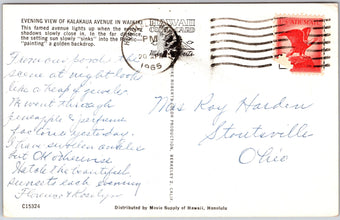 EVENING VIEW OF KALAKAUA AVENUE IN WAIKIKI
This famed avenue lights up when the evening
shadows slowly close in. In the far distance
the setting sun slowly "sinks" into the
"painting" a golden backdrop.
HAWAII
PM
1965
From our porch the
scene at night looks
like a heap of jewels.
We went through
pineapple & perfume
factories yesterday.
I have swollen ankles
but OK otherwise
Watch the beautiful
sunsets each evening
Florence &
Mrs Roy Harden
Stoutsville
Ohio
C15324
Distributed by Movie Supply of Hawaii, Honolulu